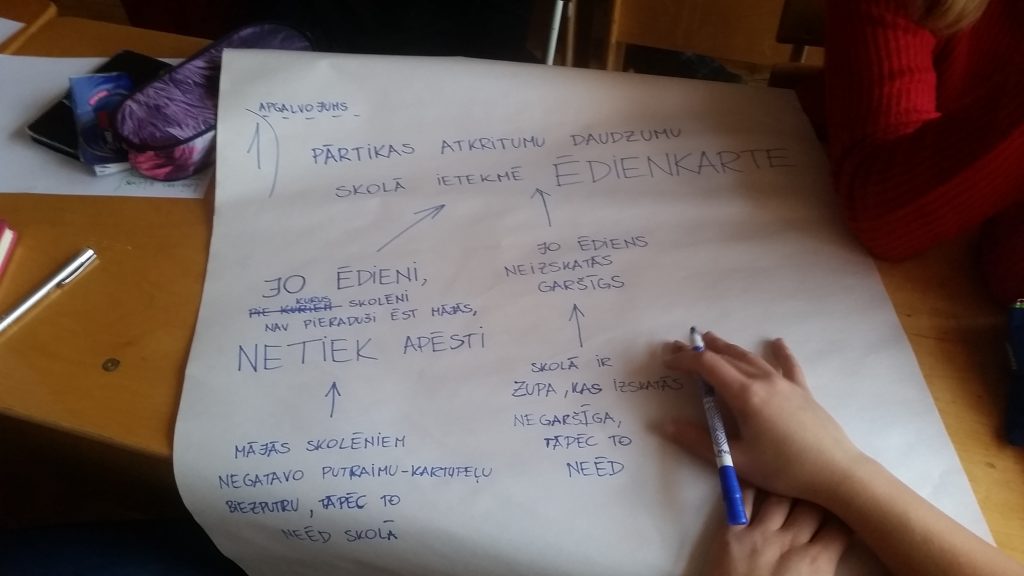 APGALVOJUMS
PĀRTIKAS ATKRITUMU DAUDZUMU
SKOLĀ IETEKMĒ ĒDIENKARTE
JO ĒDIENI,
KURUS
PIE KURIEM SKOLĒNI
NAV PIERADUŠI ĒST MĀJĀS,
NETIEK APĒSTI
MĀJĀS SKOLĒNIEM
NEGATAVO PUTRAIMU-KARTUPEĻU
BIEZPUTRU, TĀPĒC TO
NEĒD SKOLĀ
JO ĒDIENS
NEIZSKATĀS
GARŠĪGS
SKOLĀ IR
ZUPA, KAS IZSKATĀS
NEGARŠĪGA,
TĀPĒC TO
NEĒD